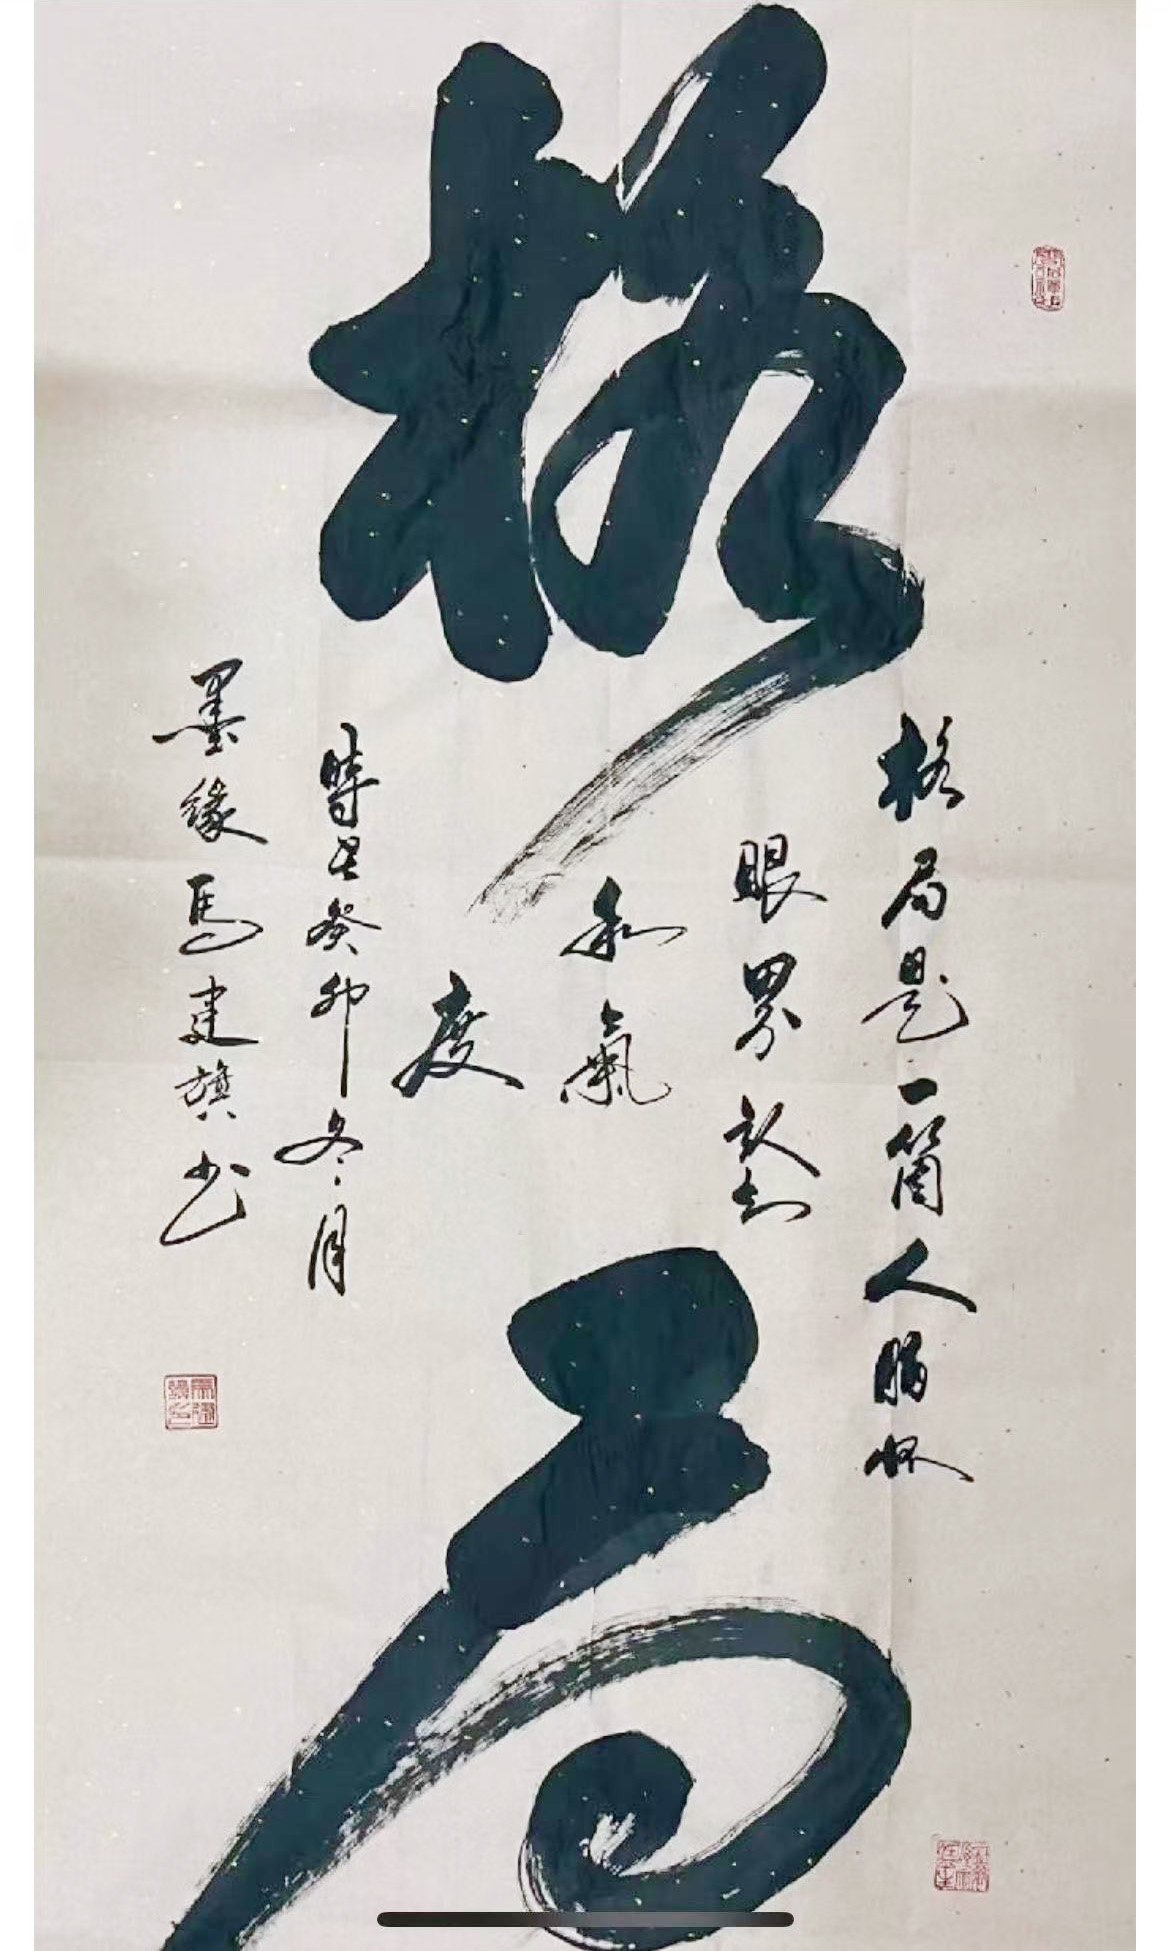 格局
格局是一箇人胸怀
眼界认知
和氣
度
時在癸卯冬月
墨缘馬建旗书